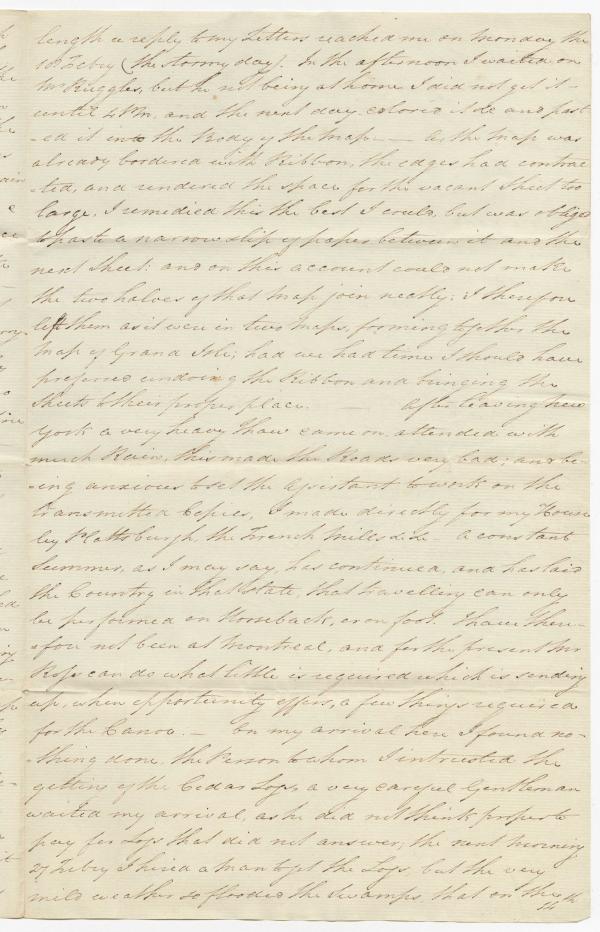 length a reply to my Letters reached me on Monday the
10 Febry (the stormy day). In the afternoon I waited on
Mr Ruggles, but he not being at home I did not get it
until 4 Pm, and the next day colored it &c and past-
-ed it into the Body of the Map — As the Map was
already bordered with Ribbon, the edges had contrac-
-ted, and rendered the space for the vacant Sheet too
large. I remedied this the best I could, but was obliged
to paste a narrow slip of paper between it and the
next Sheet: and on this account could not make
the two halves of that Map join neatly; I therefore
left them as it were in two Maps, forming together the
Map of Grand Isle; had we had time I should have
preferred undoing the Ribbon and bringing the
Sheets to their proper place. — After leaving New
York a very heavy thaw came on attended with
much Rain, this made the Roads very bad; and be-
-ing anxious to set the Assistant to work on the
transmitted Copies, I made directly for my House
by Plattsburgh, the French Mills &c &c — a constant
Summer, as I may say, has continued, and has laid
the Country in that State, that travelling can only
be performed on Horseback, or on foot. I have there-
-fore not been at Montreal, and for the present Mr
Ross can do what little is required which is sending
up, when opportunity offers, a few things required
for the Canoe. — On my arrival here I found no-
-thing done. the Person to whom I intrusted the
getting of the Cedar Logs, a very careful Gentleman
waited my arrival, as he did not think proper to
pay for Logs that did not answer; the next morning
27 Febry I hired a Man to get the Logs, but the very
mild weather so flooded the Swamps, that on the
14th